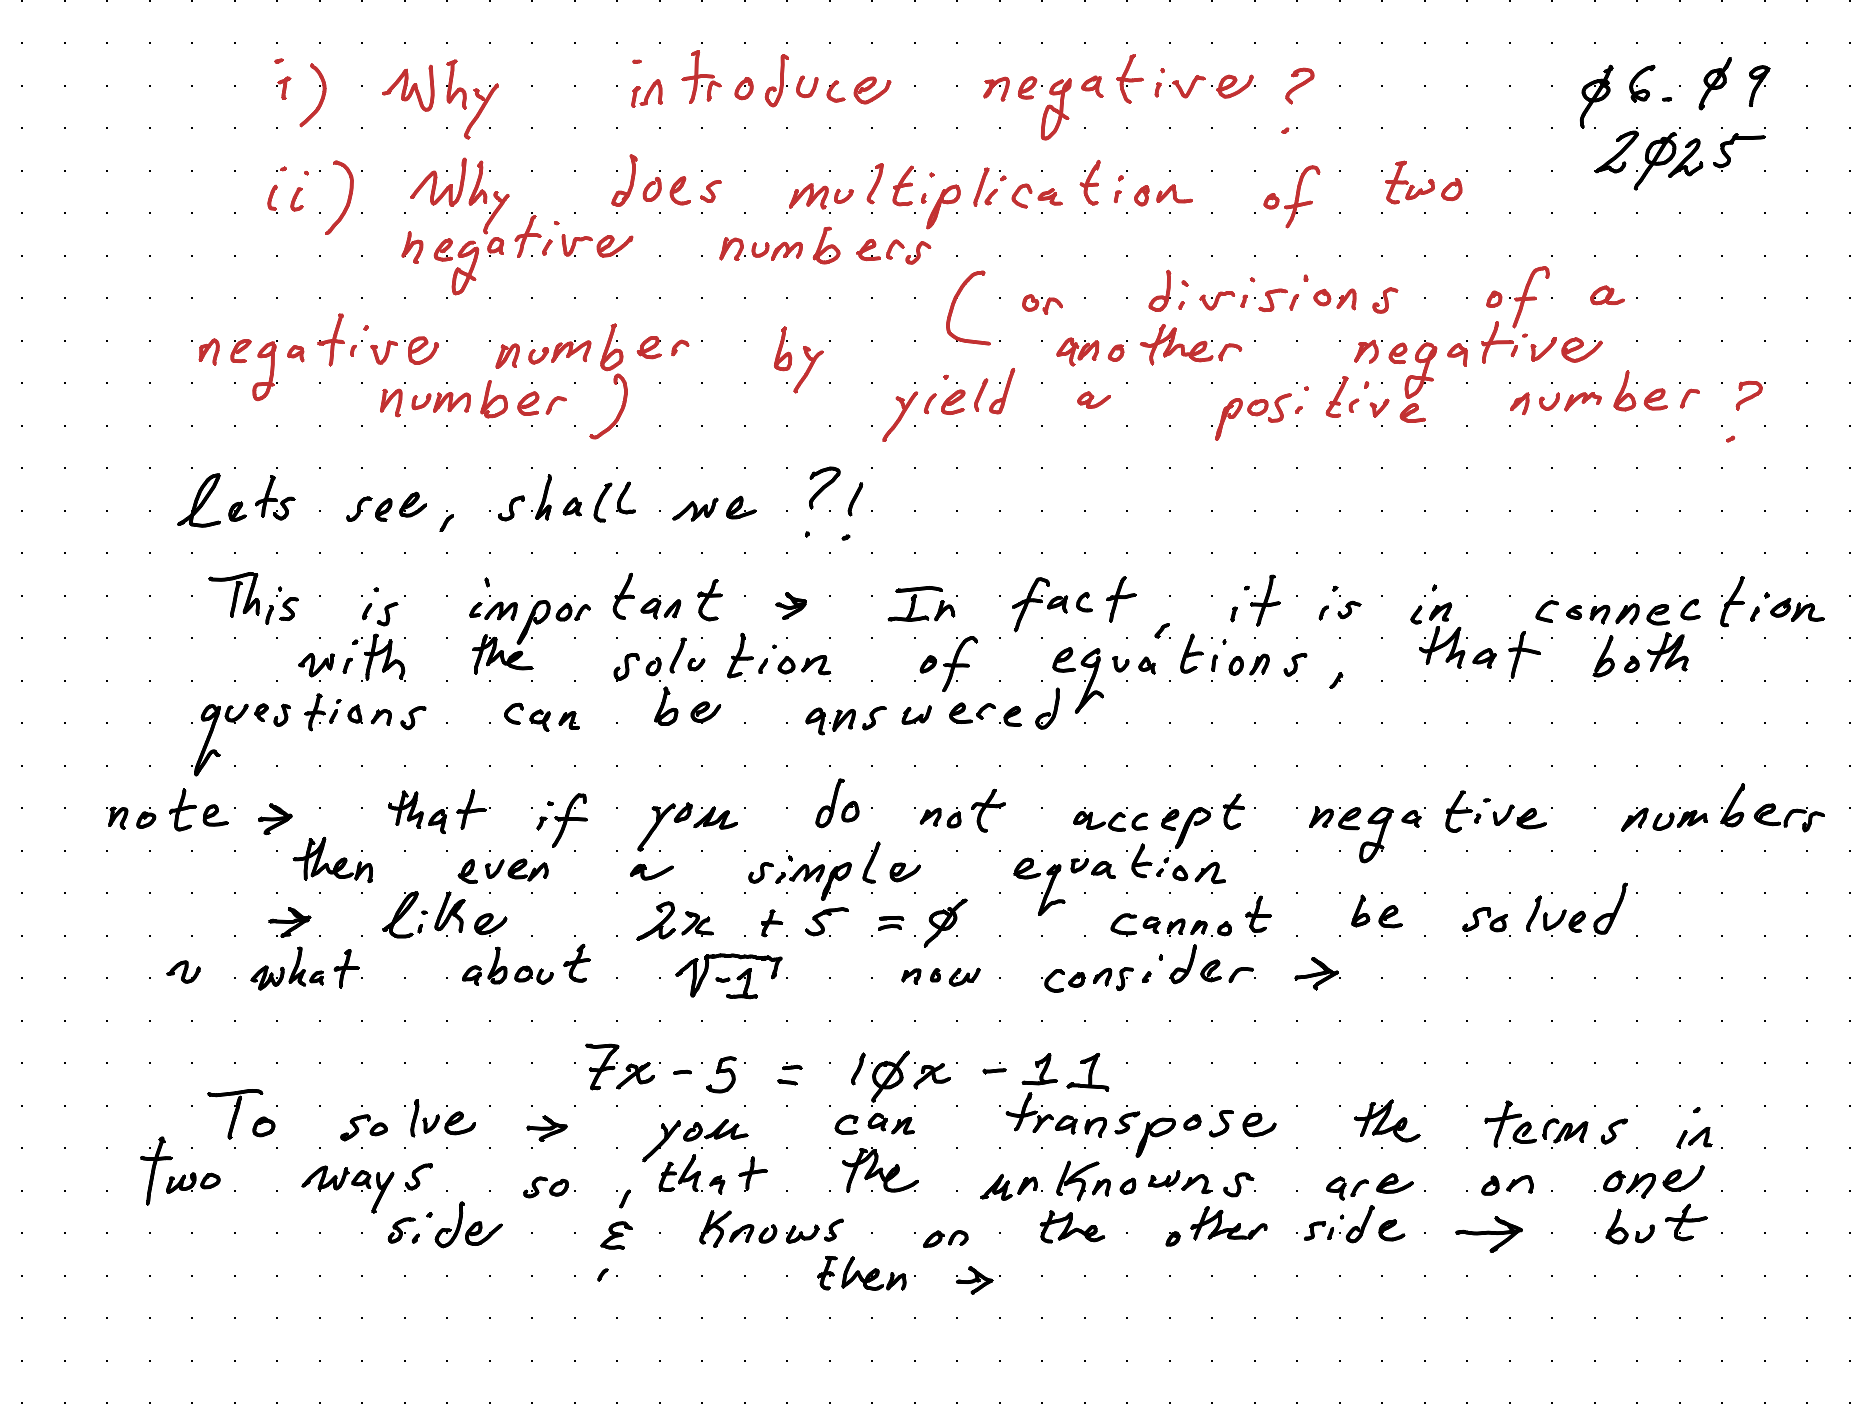 i) Why introduce negative?
Ø6-Ø9
2Ø25
ii) Why does multiplication of two
negative numbers
(or divisions of a
negative number by another negative
number) yield a positive number?
Lets see, shall we?!
This is important → In fact, it is in connection
with the solution of equations, that both
questions can be answered
note → that if you do not accept negative numbers
then even a simple equation
→ like 2x + 5 = Ø cannot be solved
~ what about √-1 now consider →
7x - 5 = 1Øx - 11
To solve → you can transpose the terms in
two ways so, that the unknowns are on one
side & knows on the other side → but
then →